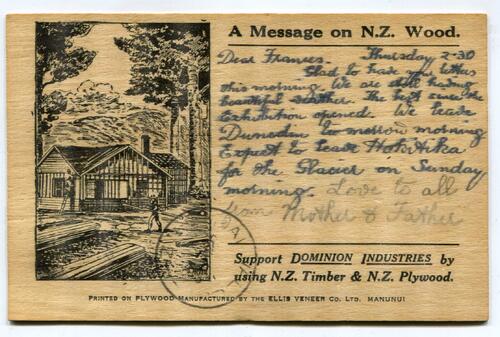 A Message on N.Z. Wood.
Dear Frances. Thursday 2-30
Glad to have your letters
this morning. We are still having
beautiful weather. The best since the
Exhibition opened. We leave
Dunedin to morrow morning
Expect to leave Hokitika
for the Glacier on Sunday
morning. Love to all
from Mother & Father
Support DOMINION INDUSTRIES by
using N.Z. Timber & N.Z. Plywood.
PRINTED ON PLYWOOD MANUFACTURED BY THE ELLIS VENEER CO. LTD. MANUNUI